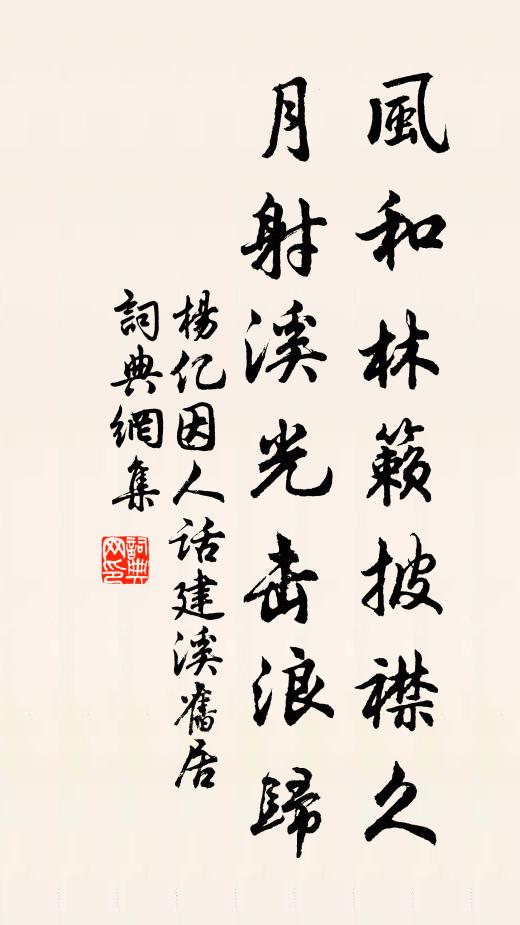 風和林籟披襟久
月射溪光击浪歸
楊亿因人话建溪舊居
詞典網集
詞典网印